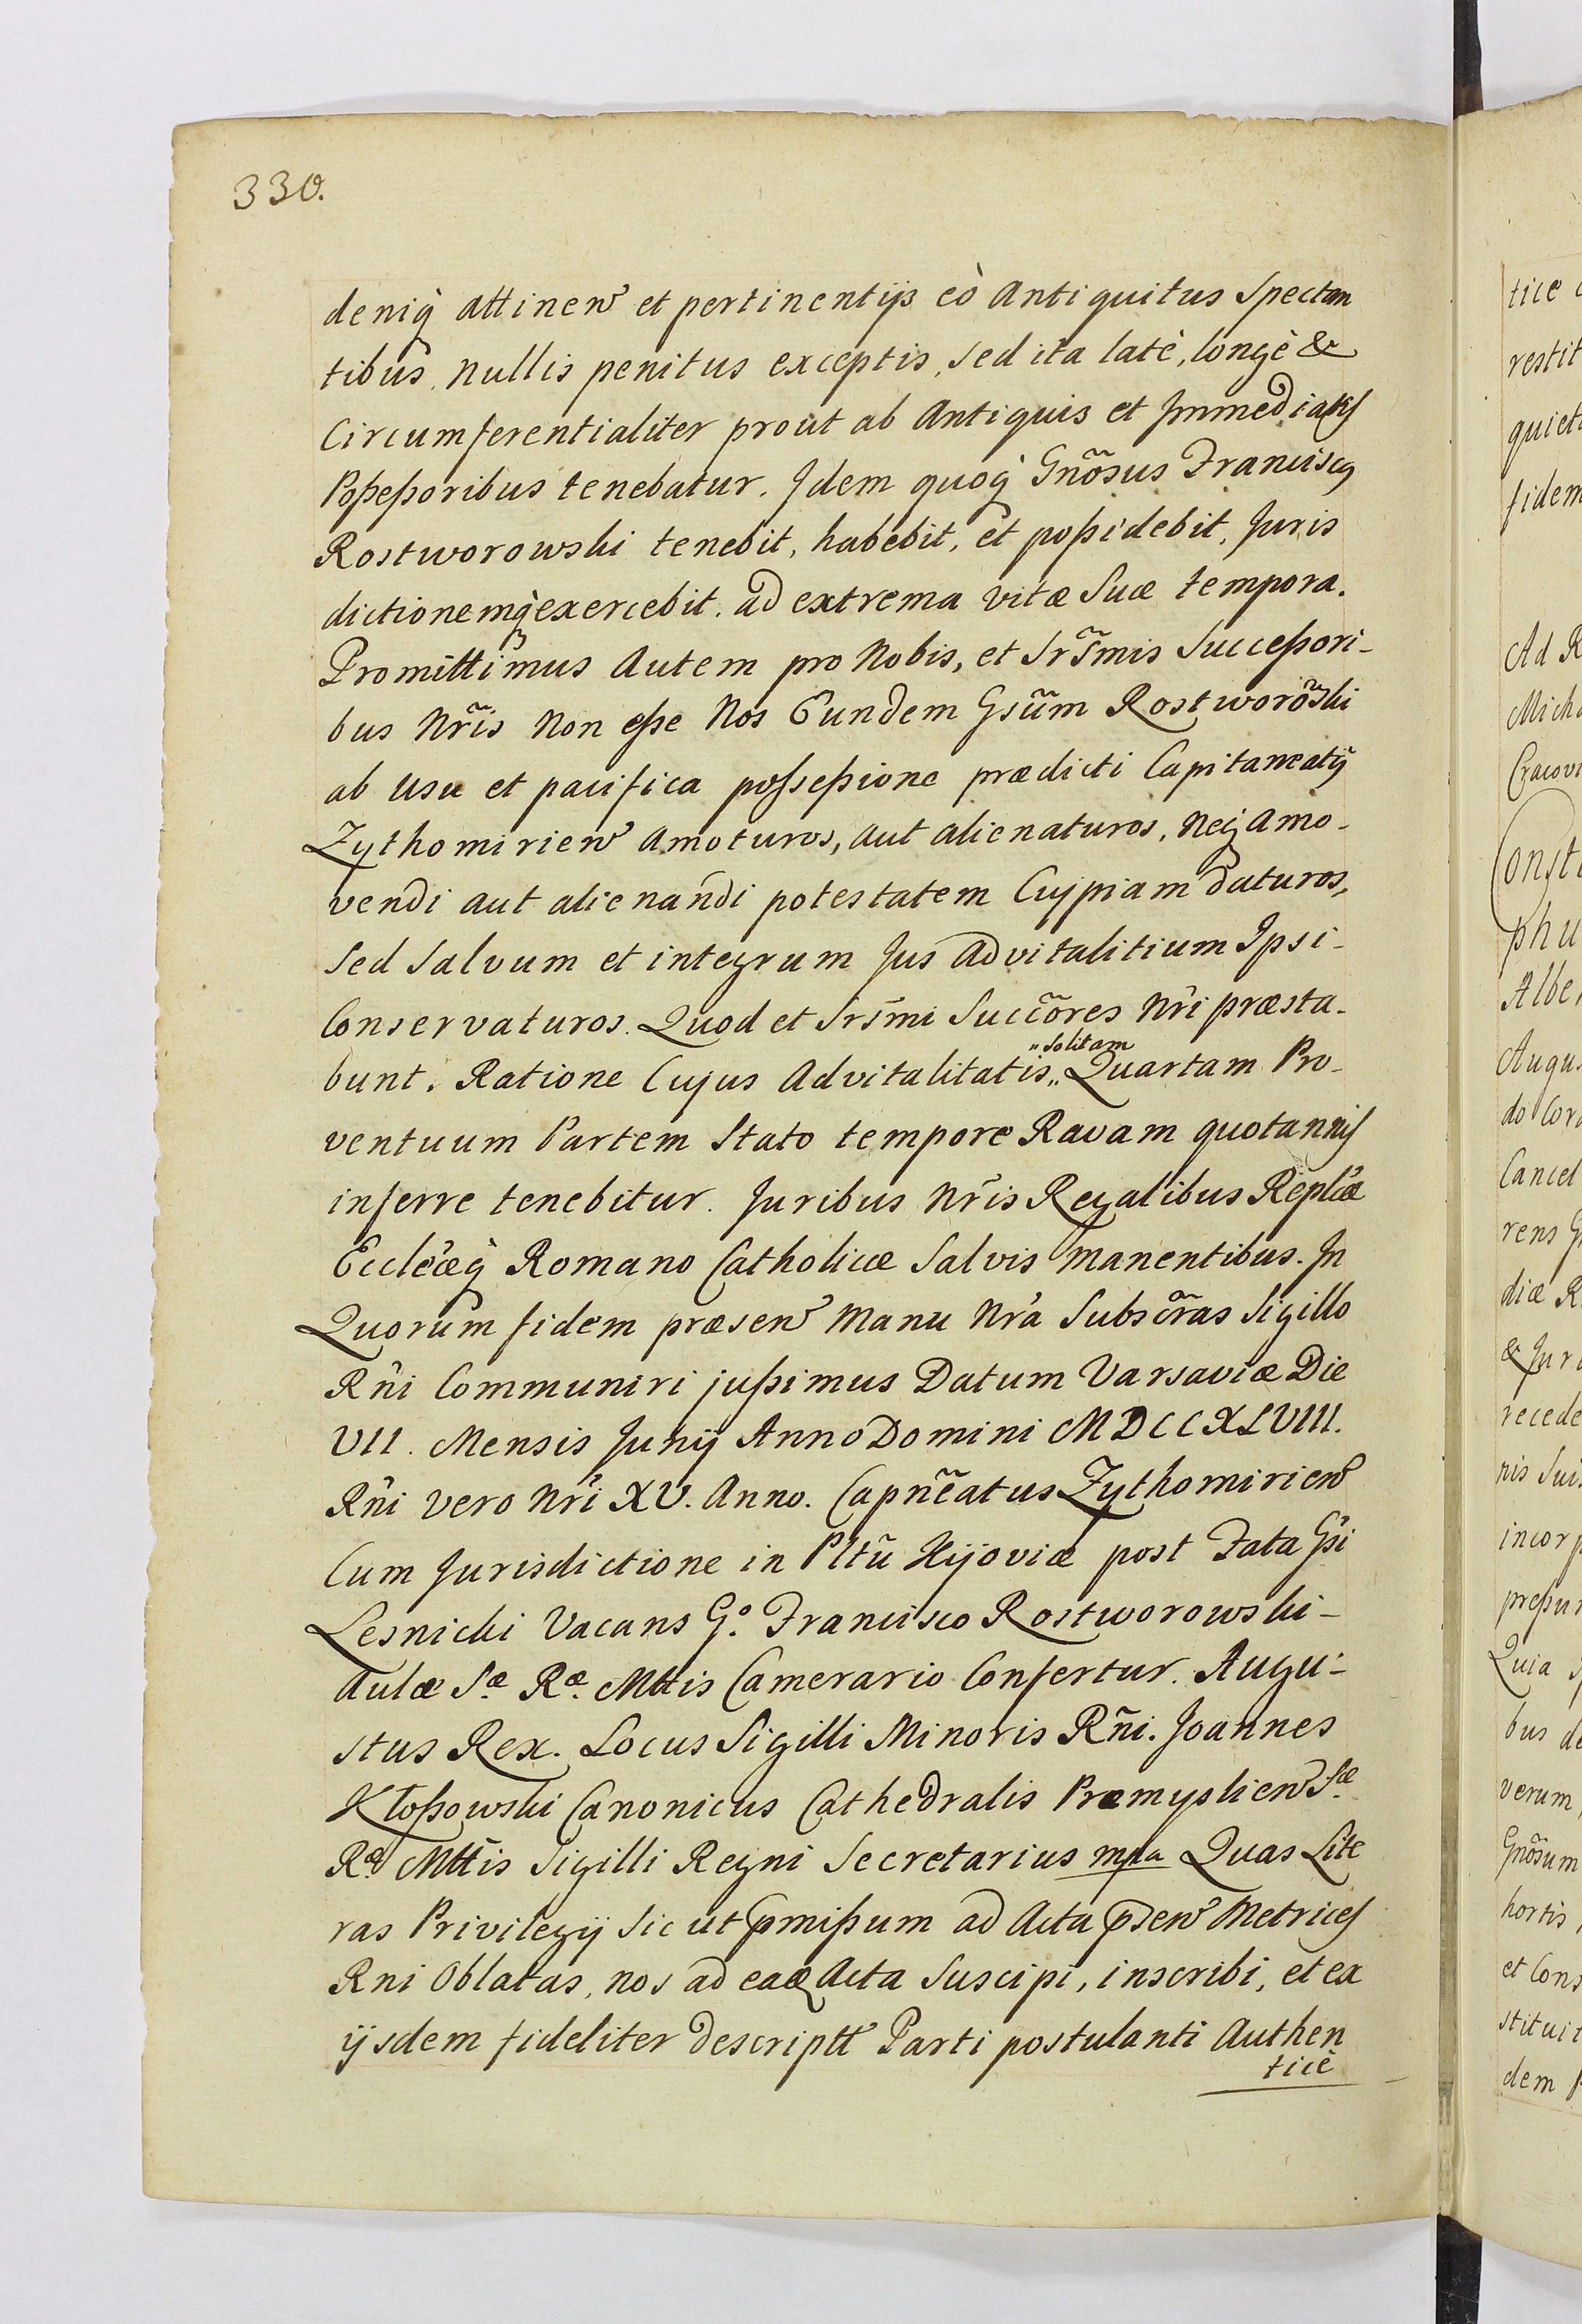 330.
deniq̀ attinen̄ et pertinentijs eò Antiquitus Spectan
tibus, nullis penitus exceptis, sed ita latè, longè &
Circumferentialiter prout ab Antiquis et Immediatis
Poßeßoribus tenebatur. Idem quoq̀ Gnõsus Franciscq
Rostworowski tenebit, habebit, et poßidebit, Juris
dictionemq̀ exercebit. ad extrema vitæ Suæ tempora.
Promittimus Autem pro Nobis, et Srs̃mis Succeßori-
bus Nr̃is Non eße Nos Eundem Gsũm Rostworõski
ab Usu et pacifica posseßione prædicti Capitaneatȳ
Zythomirien̄ Amoturos, aut alienaturos, neq̨ Amo-
vendi aut alienandi potestatem Cujpiam daturos,
Sed Salvum et integrum Jus Advitalitium Ipsi-
Conservaturos. Quod et Srs̃mi Succõres Nr̃i præsta-
bunt. Ratione Cujus Advitalitatis „solitam„ Quartam Pro-
ventuum Partem Stato tempore Ravam quotannis
inferre tenebitur. Juribus Nr̃is Regalibus Repl̃cæ
Eccle͂æq̀ Romano Catholicæ Salvis Manentibus. In
Quorum fidem præsen̄ Manu Nr̃a Subscr̃as Sigillo
Rñi Communiri jußimus Datum Varsaviæ Die
VII. Mensis Junij Anno Domini MDCCXLVIII.
Rñi vero Nr̃i XV. Anno. Capnẽatus Zythomirien̄
Cum Jurisdictione in Pltũ Kijoviæ post Fata Gsĩ
Lesnicki Vacans G.º Francisco Rostworowski-
Aulæ S.æ R.æ Mttis Camerario Confertur. Augu-
stus Rex. Locus Sigilli Minoris Rñi. Joannes
Kłoßowski Canonicus Cathedralis Præmyslien̄ S.æ
R.æ Mttis Sigilli Regni Secretarius mpa Quas Lite
ras Privilegij Sic ut p̃mißum ad Acta p̃sen̄ Metrices
Rni Oblatas, nos ad eaq̨ Acta Suscipi, inscribi, et ex
ijsdem fideliter descriptt̃ Parti postulanti Authen
ticè